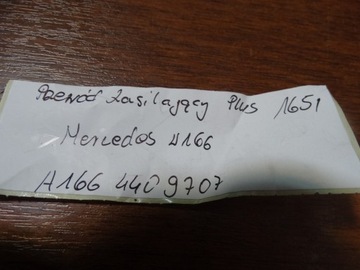 Przewód zasilający Plus 1651
Mercedes W166
A166 440 9707